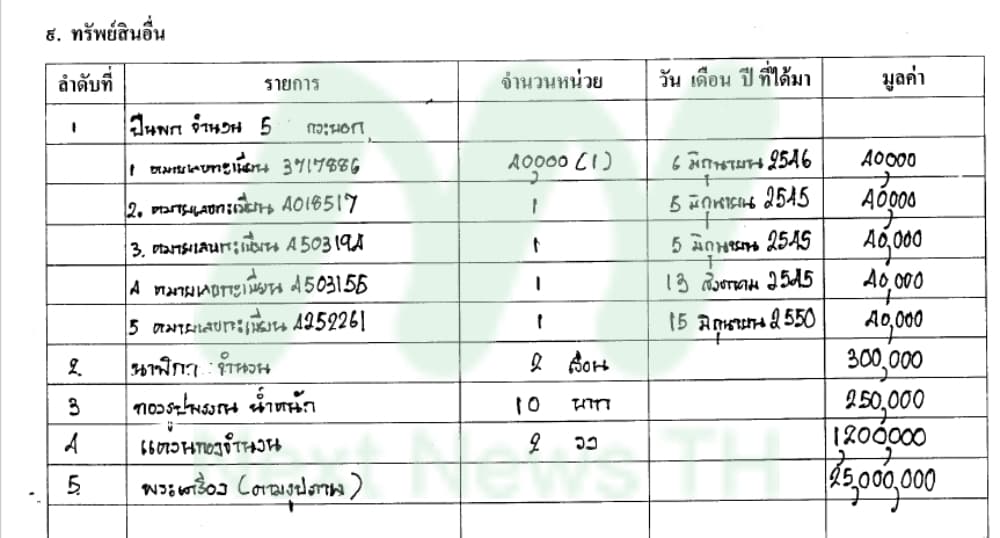 ๕. ทรัพย์สินอื่น
ลำดับที่ รายการ จำนวนหน่วย วัน เดือน ปี ที่ได้มา มูลค่า
1 ปืนพก จำนวน 5 กระบอก
1 หมายเลขทะเบียน 3717886 40,000 (1) 6 มิถุนายน 2546 40,000
2. หมายเลขทะเบียน 4018517 1 5 มิถุนายน 2545 40,000
3. หมายเลขทะเบียน 4503194 1 5 มิถุนายน 2545 40,000
4 หมายเลขทะเบียน 4503155 1 13 สิงหาคม 2545 40,000
5 หมายเลขทะเบียน 4252261 1 15 มิถุนายน 2550 40,000
2. นาฬิกา จำนวน 2 เรือน 300,000
3 ทองรูปพรรณ น้ำหนัก 10 บาท 250,000
4 แหวนทองจำนวน 2 วง 1,200,000
5. พระเครื่อง (ตามรูปภาพ) 25,000,000
Next News TH